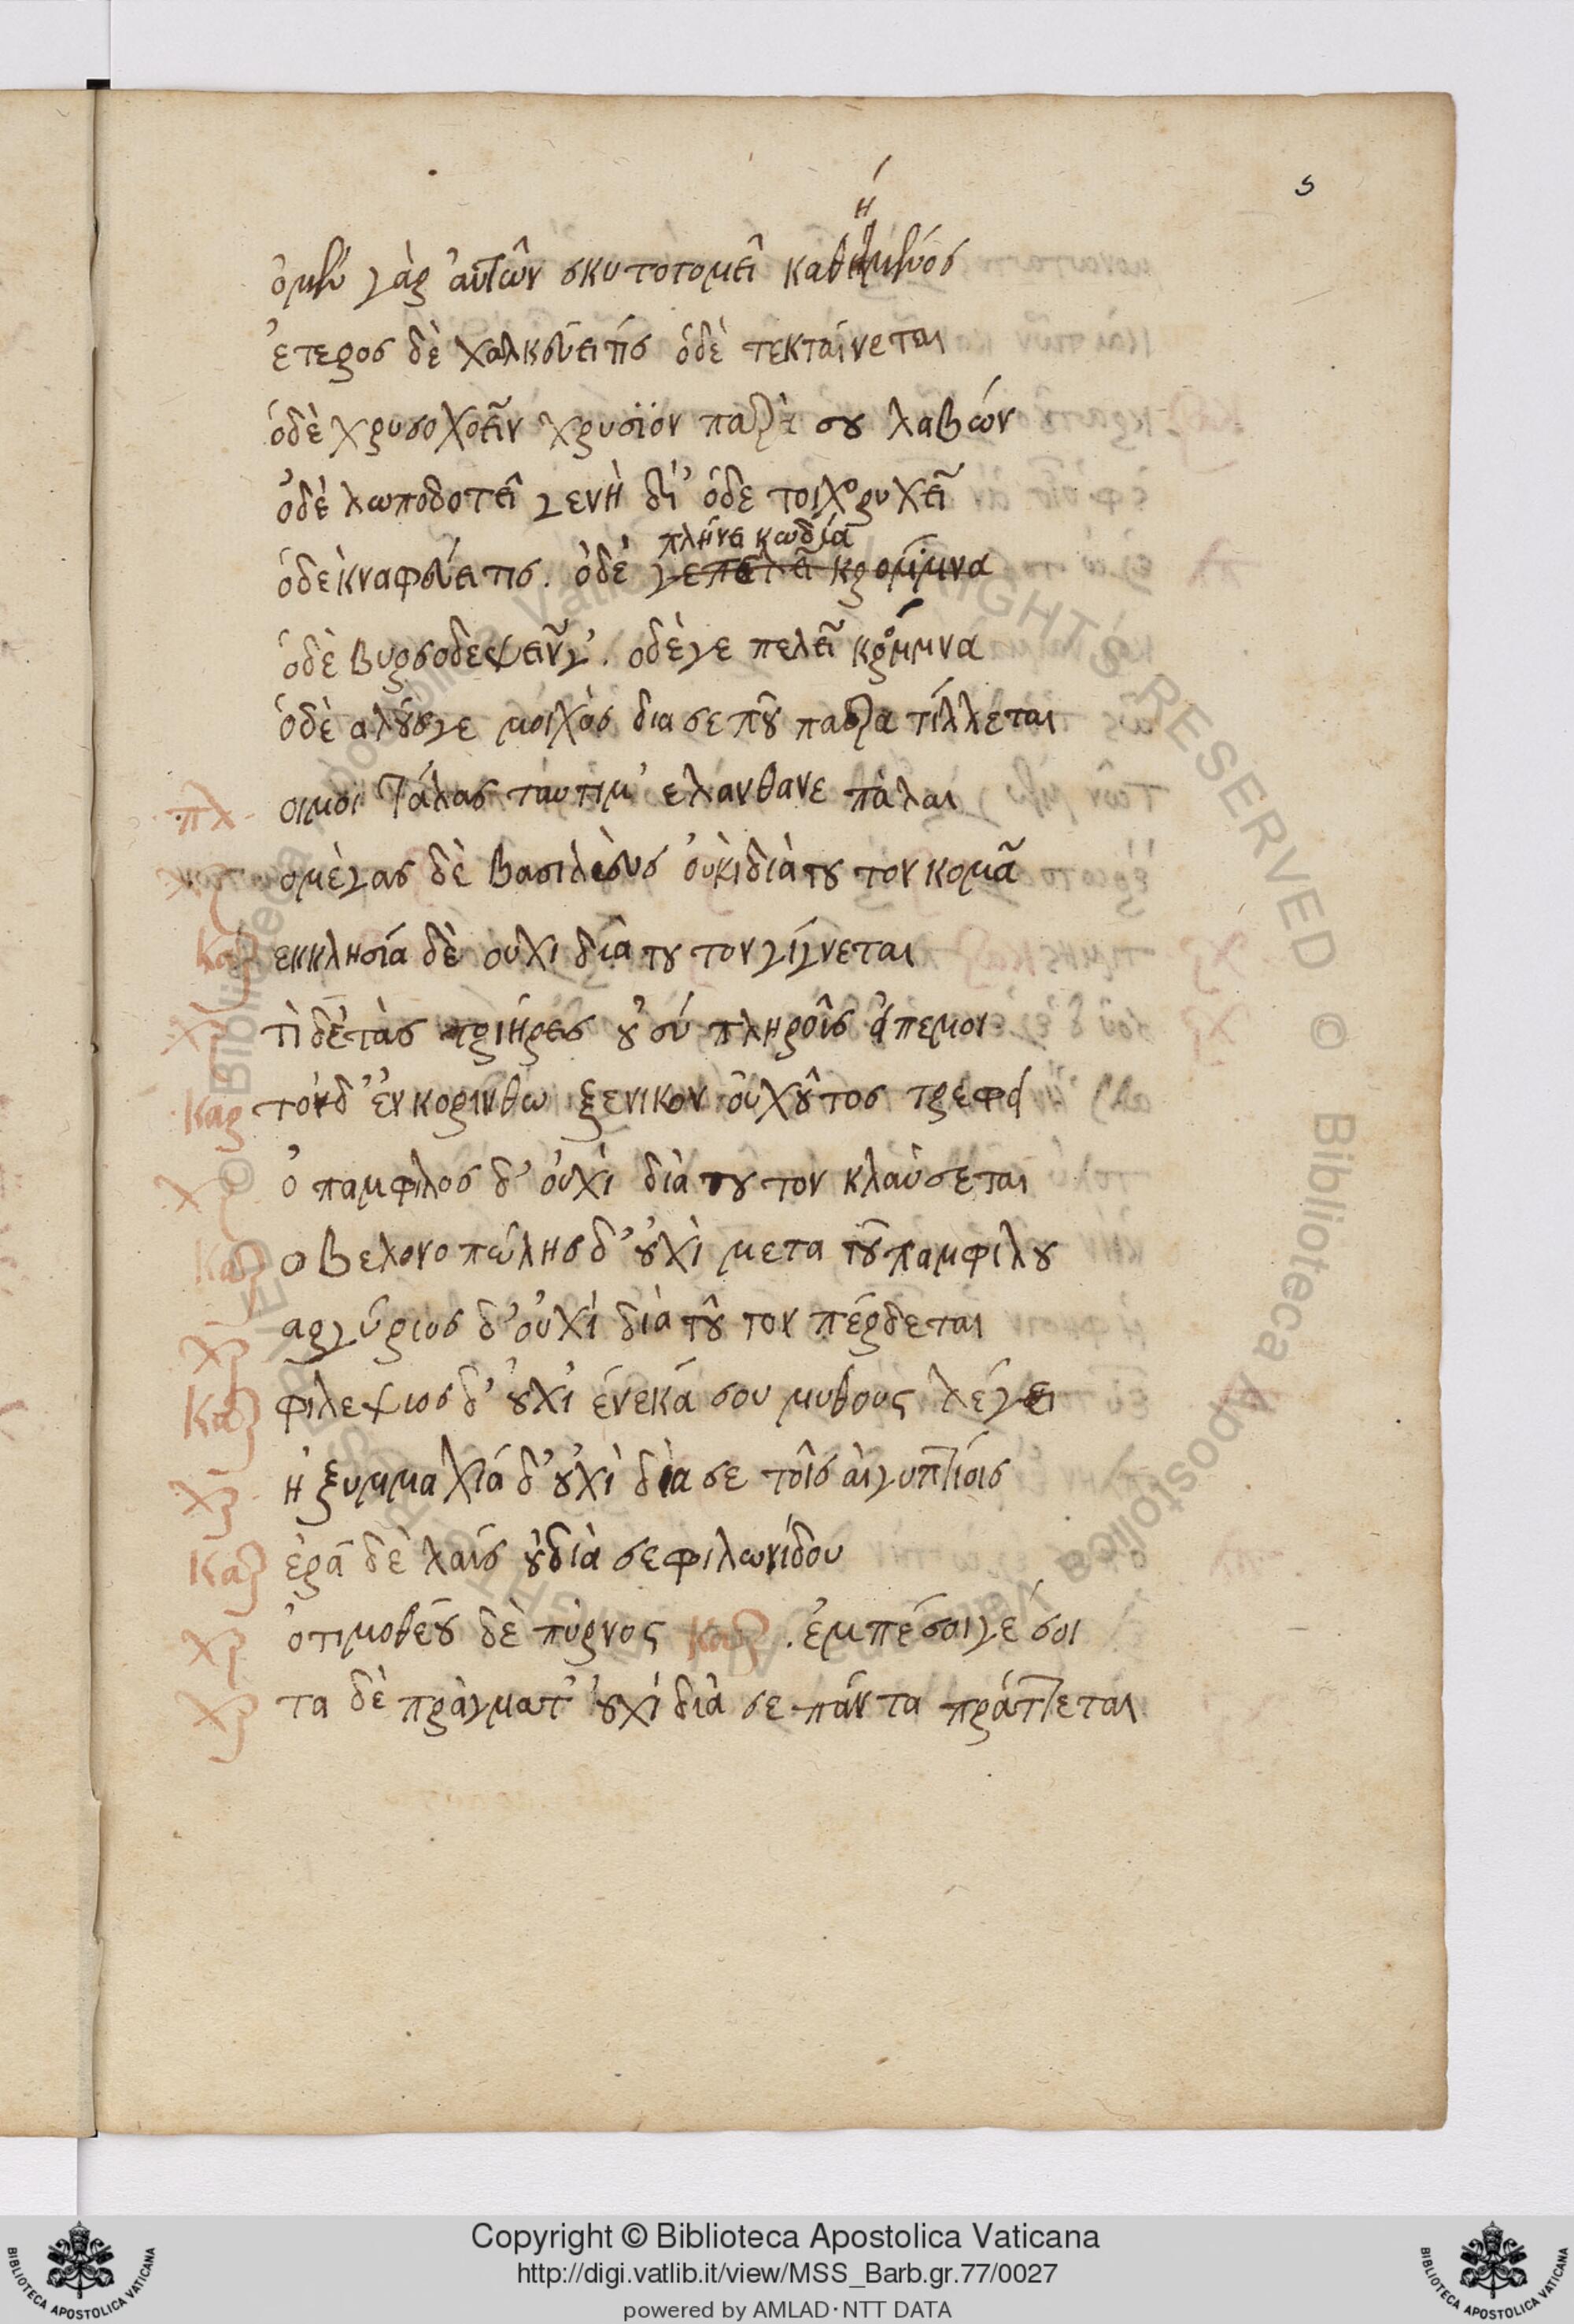 5
ὁ μὲν γὰρ ἀυτῶν σκυτοτομεῖ καθήμενος
ἕτερος δὲ χαλκεύει τίς ὁδὲ τεκταίνεται
ὁδὲ χρυσοχοεῖν χρυσίον παρὰ σου λαβών
ὁδὲ λωποδυτεῖ γενὴ δί' ὁδε τοιχορυχεῖ
πλήνει κωδία
ὁδὲ κναφεύει τις. ὁδὲ γε πελεῖ κρομμνα
ὁδὲ βυρσοδεψεῖν γ'. ὁδὲ γε πελεῖ κρόμμνα
ὁδὲ αλούς γε μοιχὸς δια σε που παρα τίλλεται
πλ. οιμοι τάλας ταυτι μ' ελάνθανε πάλαι
ομέγας δὲ βασιλεὺς οὐκι διὰ τουτον κομᾶ
καρ εκκλησία δὲ ουχι διὰ τουτον γίγνεται
χρ τὶ δέ τὰς τριήρες οὐ σύ πληροῖς ἐιπεμοι
καρ τόνδ' ἐν κορινθω ξενικον οὐχοῦτος τρεφει
χρ ὁ παμφιλος δ' οὐχὶ διὰ τουτον κλαύσεται
καρ ο βελονοπώλης δ' οὐχὶ μετα τοῦ παμφιλου
χρ αργύριος δ' οὐχὶ διὰ τοῦτον πέρδεται
καρ φιλεψιος δ' οὐχὶ ἕνεκά σου μυθους λέγει
χρ ἡ ξυμμαχιά δ' οὐχὶ δια σε τοῖς ἀιγυπτίοις
καρ ἐρᾶ δὲ λαίς οὐ διὰ σε φιλωνίδου
χρ ὁτιμοθέου δὲ πύργος καρ. ἐμπέσοι γέ σοι
χρ τα δὲ πράγματ' οὐχὶ διὰ σε πάντα πράττεται
Copyright © Biblioteca Apostolica Vaticana
http://digi.vatlib.it/view/MSS_Barb.gr.77/0027
powered by AMLAD·NTT DATA